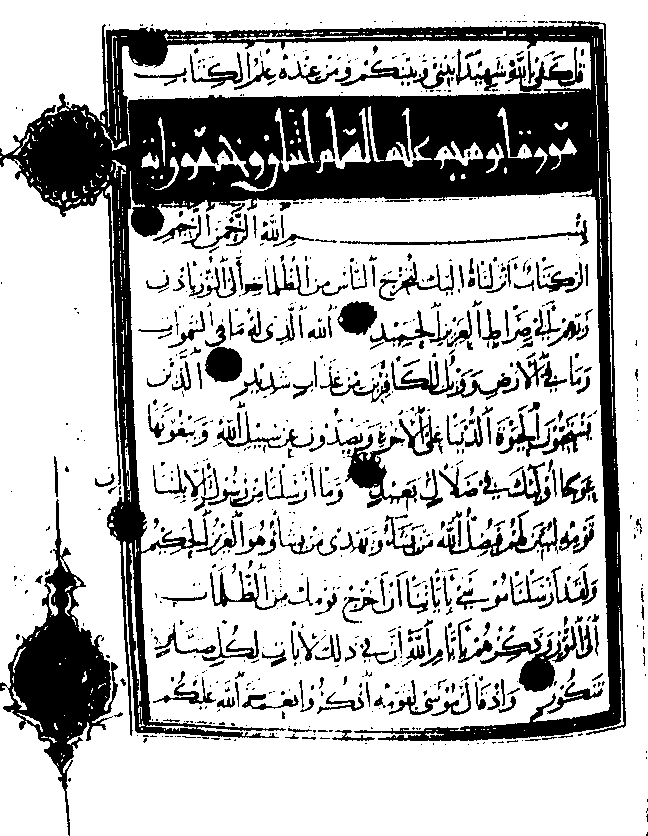 قل كفى بالله شهيدا بيني وبينكم ومن عنده علم الكتاب
سورة ابرهيم عليه السلام اثنتان وخمسون اية
بسم الله الرحمن الرحيم
الر كتاب أنزلناه إليك لتخرج الناس من الظلمات إلى النور بإذن
ربهم إلى صراط العزيز الحميد الله الذي له ما في السموات
وما في الأرض وويل للكافرين من عذاب شديد الذين
يستحبون الحيوة الدنيا على الآخرة ويصدون عن سبيل الله ويبغونها
عوجا أولئك في ضلال بعيد وما أرسلنا من رسول إلا بلسان
قومه ليبين لهم فيضل الله من يشاء ويهدي من يشاء وهو العزيز الحكيم
ولقد أرسلنا موسى بآياتنا أن أخرج قومك من الظلمات
إلى النور وذكرهم بأيام الله إن في ذلك لآيات لكل صبار
شكور وإذ قال موسى لقومه اذكروا نعمة الله عليكم